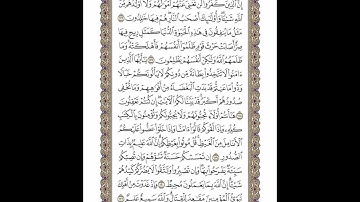 إِنَّ الَّذِينَ كَفَرُوا لَن تُغْنِيَ عَنْهُمْ أَمْوَالُهُمْ وَلَا أَوْلَادُهُم مِّنَ
اللَّهِ شَيْئًا وَأُولَٰئِكَ أَصْحَابُ النَّارِ هُمْ فِيهَا خَالِدُونَ ١١٦
مَثَلُ مَا يُنفِقُونَ فِي هَٰذِهِ الْحَيَوٰةِ الدُّنْيَا كَمَثَلِ رِيحٍ فِيهَا
صِرٌّ أَصَابَتْ حَرْثَ قَوْمٍ ظَلَمُوا أَنفُسَهُمْ فَأَهْلَكَتْهُ وَمَا
ظَلَمَهُمُ اللَّهُ وَلَٰكِنْ أَنفُسَهُمْ يَظْلِمُونَ ١١٧ يَٰأَيُّهَا الَّذِينَ
ءَامَنُوا لَا تَتَّخِذُوا بِطَانَةً مِّن دُونِكُمْ لَا يَأْلُونَكُمْ خَبَالًا
وَدُّوا مَا عَنِتُّمْ قَدْ بَدَتِ الْبَغْضَاءُ مِنْ أَفْوَٰهِهِمْ وَمَا تُخْفِي
صُدُورُهُمْ أَكْبَرُ قَدْ بَيَّنَّا لَكُمُ الْءَايَٰتِ إِن كُنتُمْ تَعْقِلُونَ
١١٨ هَٰأَنتُمْ أُولَاءِ تُحِبُّونَهُمْ وَلَا يُحِبُّونَكُمْ وَتُؤْمِنُونَ بِالْكِتَٰبِ
كُلِّهِ وَإِذَا لَقُوكُمْ قَالُوا ءَامَنَّا وَإِذَا خَلَوْا عَضُّوا عَلَيْكُمُ
الْأَنَامِلَ مِنَ الْغَيْظِ قُلْ مُوتُوا بِغَيْظِكُمْ إِنَّ اللَّهَ عَلِيمٌ بِذَاتِ
الصُّدُورِ ١١٩ إِن تَمْسَسْكُمْ حَسَنَةٌ تَسُؤْهُمْ وَإِن تُصِبْكُمْ
سَيِّئَةٌ يَفْرَحُوا بِهَا وَإِن تَصْبِرُوا وَتَتَّقُوا لَا يَضُرُّكُمْ كَيْدُهُمْ
شَيْئًا إِنَّ اللَّهَ بِمَا يَعْمَلُونَ مُحِيطٌ ١٢٠ وَإِذْ غَدَوْتَ مِنْ أَهْلِكَ
تُبَوِّئُ الْمُؤْمِنِينَ مَقَٰعِدَ لِلْقِتَالِ وَاللَّهُ سَمِيعٌ عَلِيمٌ ١٢١